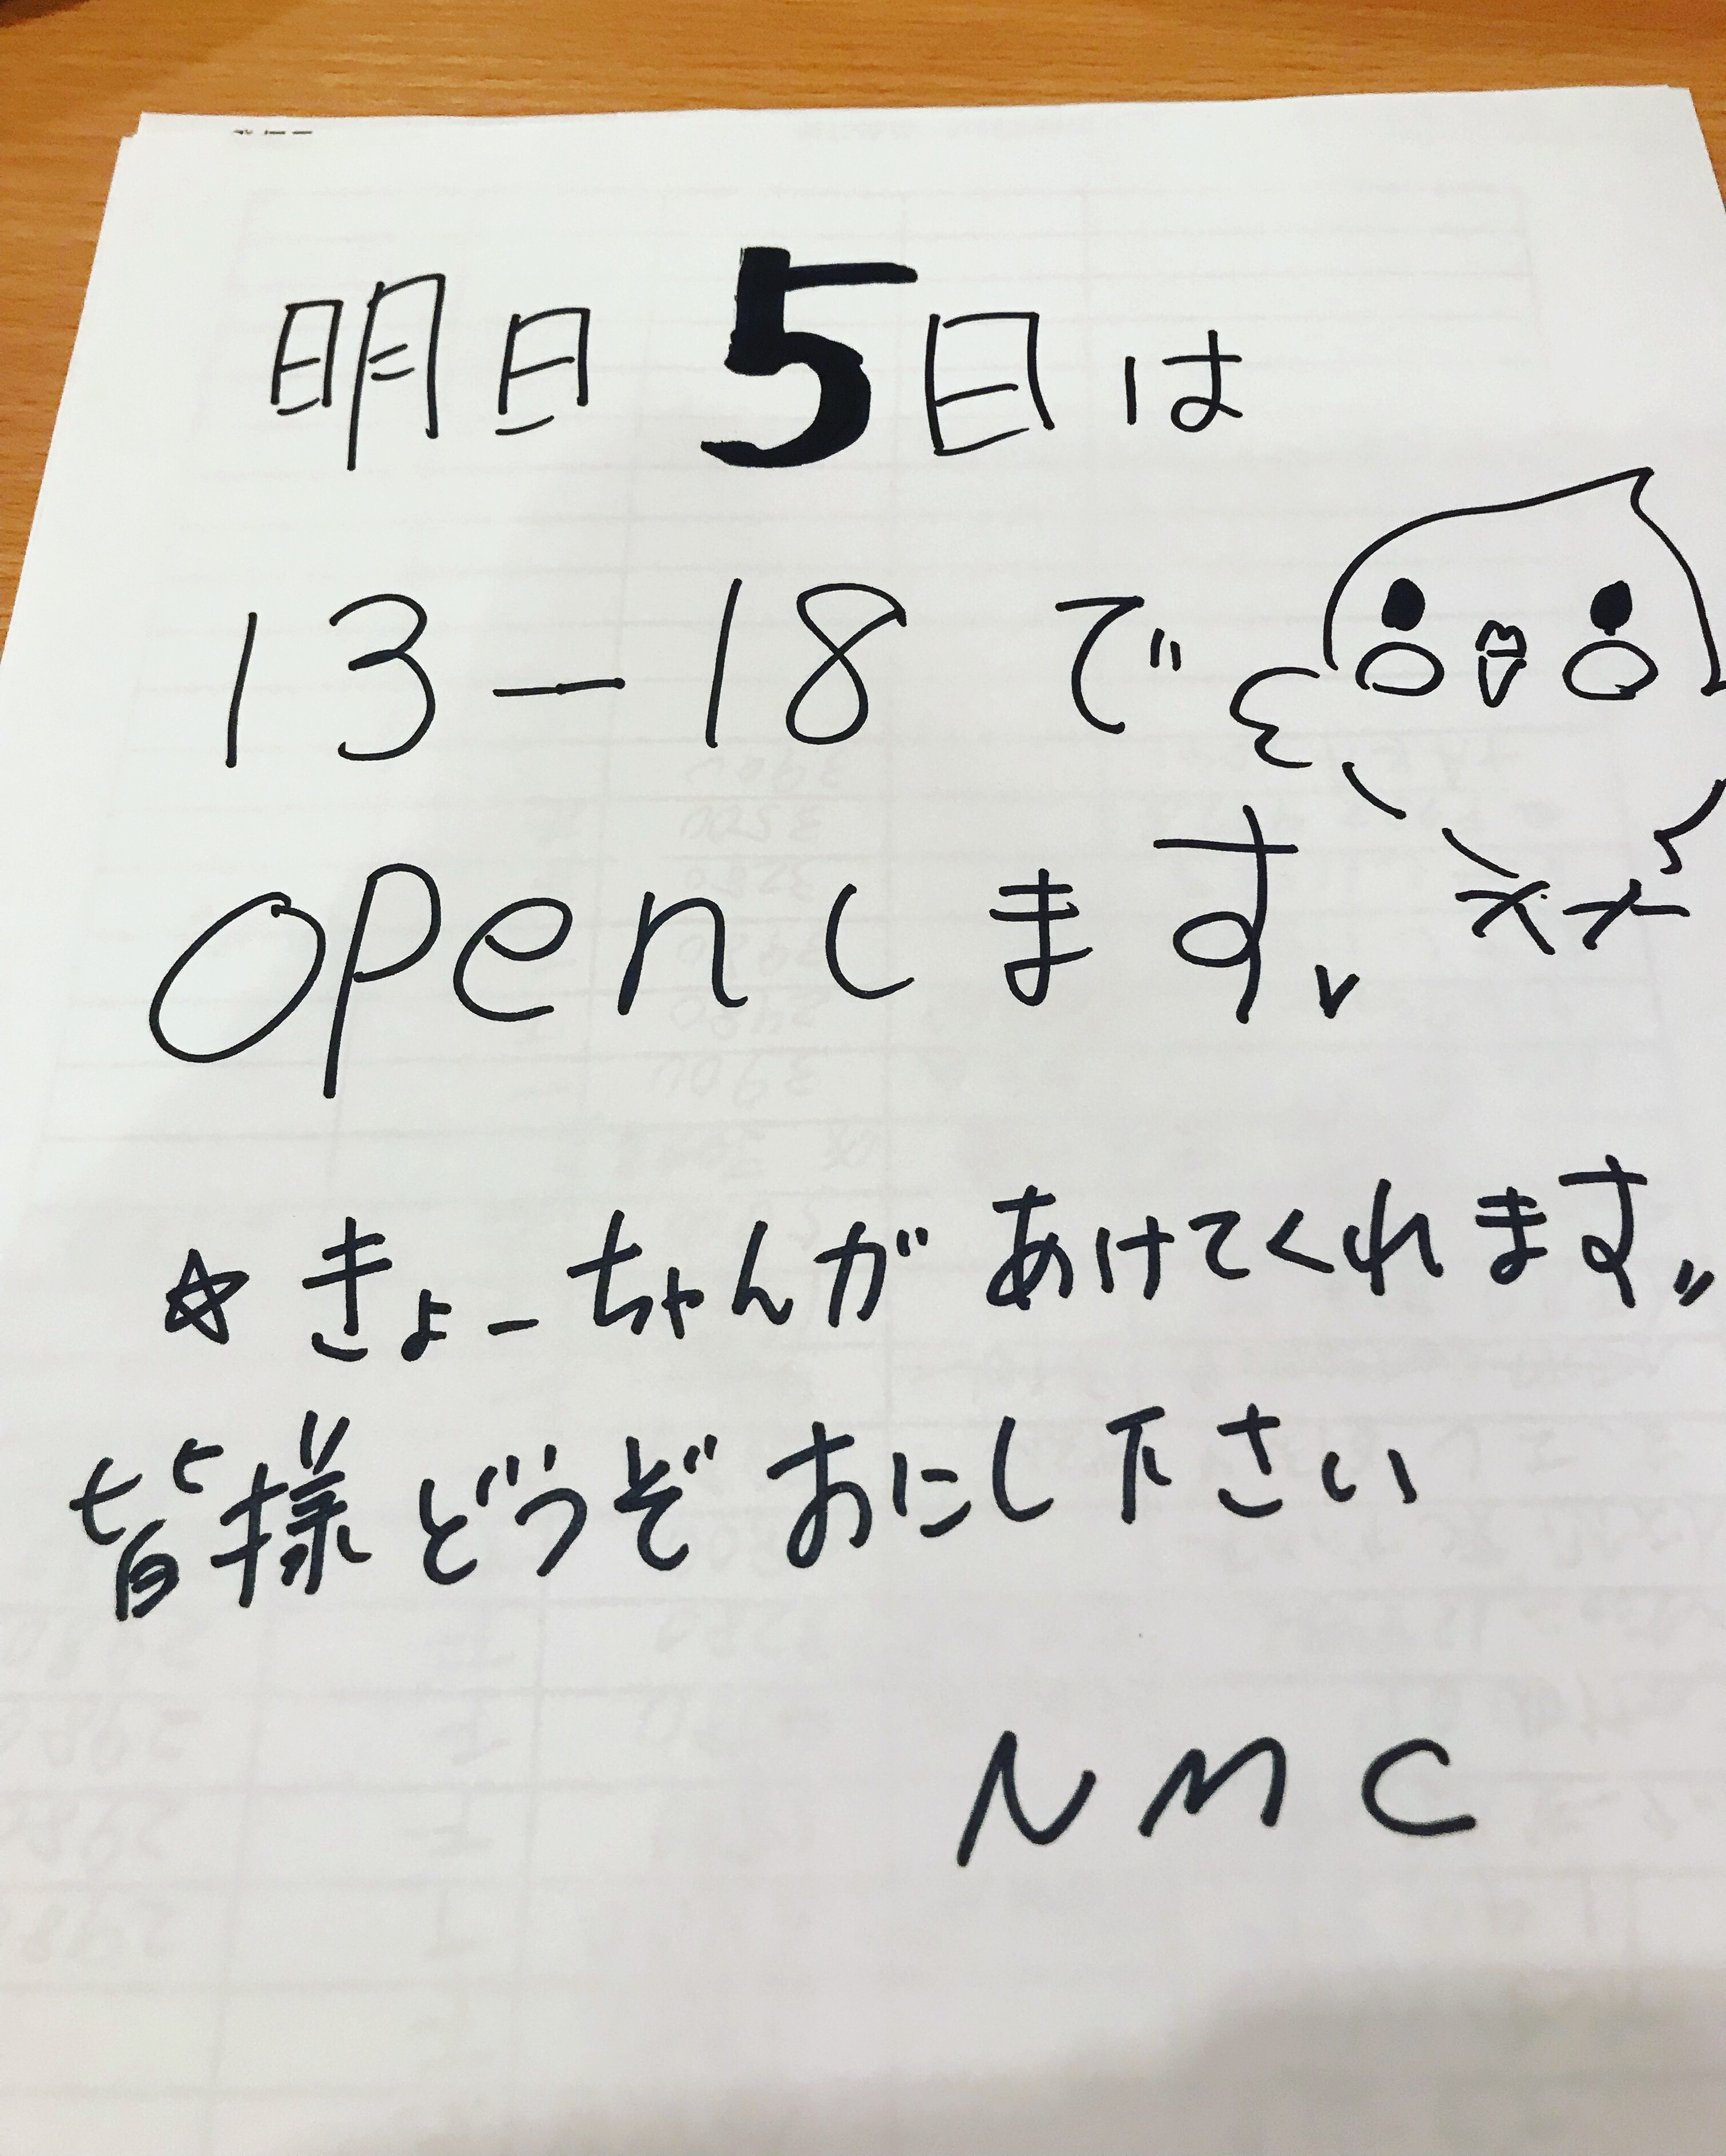 明日5日は
13-18で
openします、
☆きょーちゃんがあけてくれます〃
皆様どうぞおにし下さい
NMC